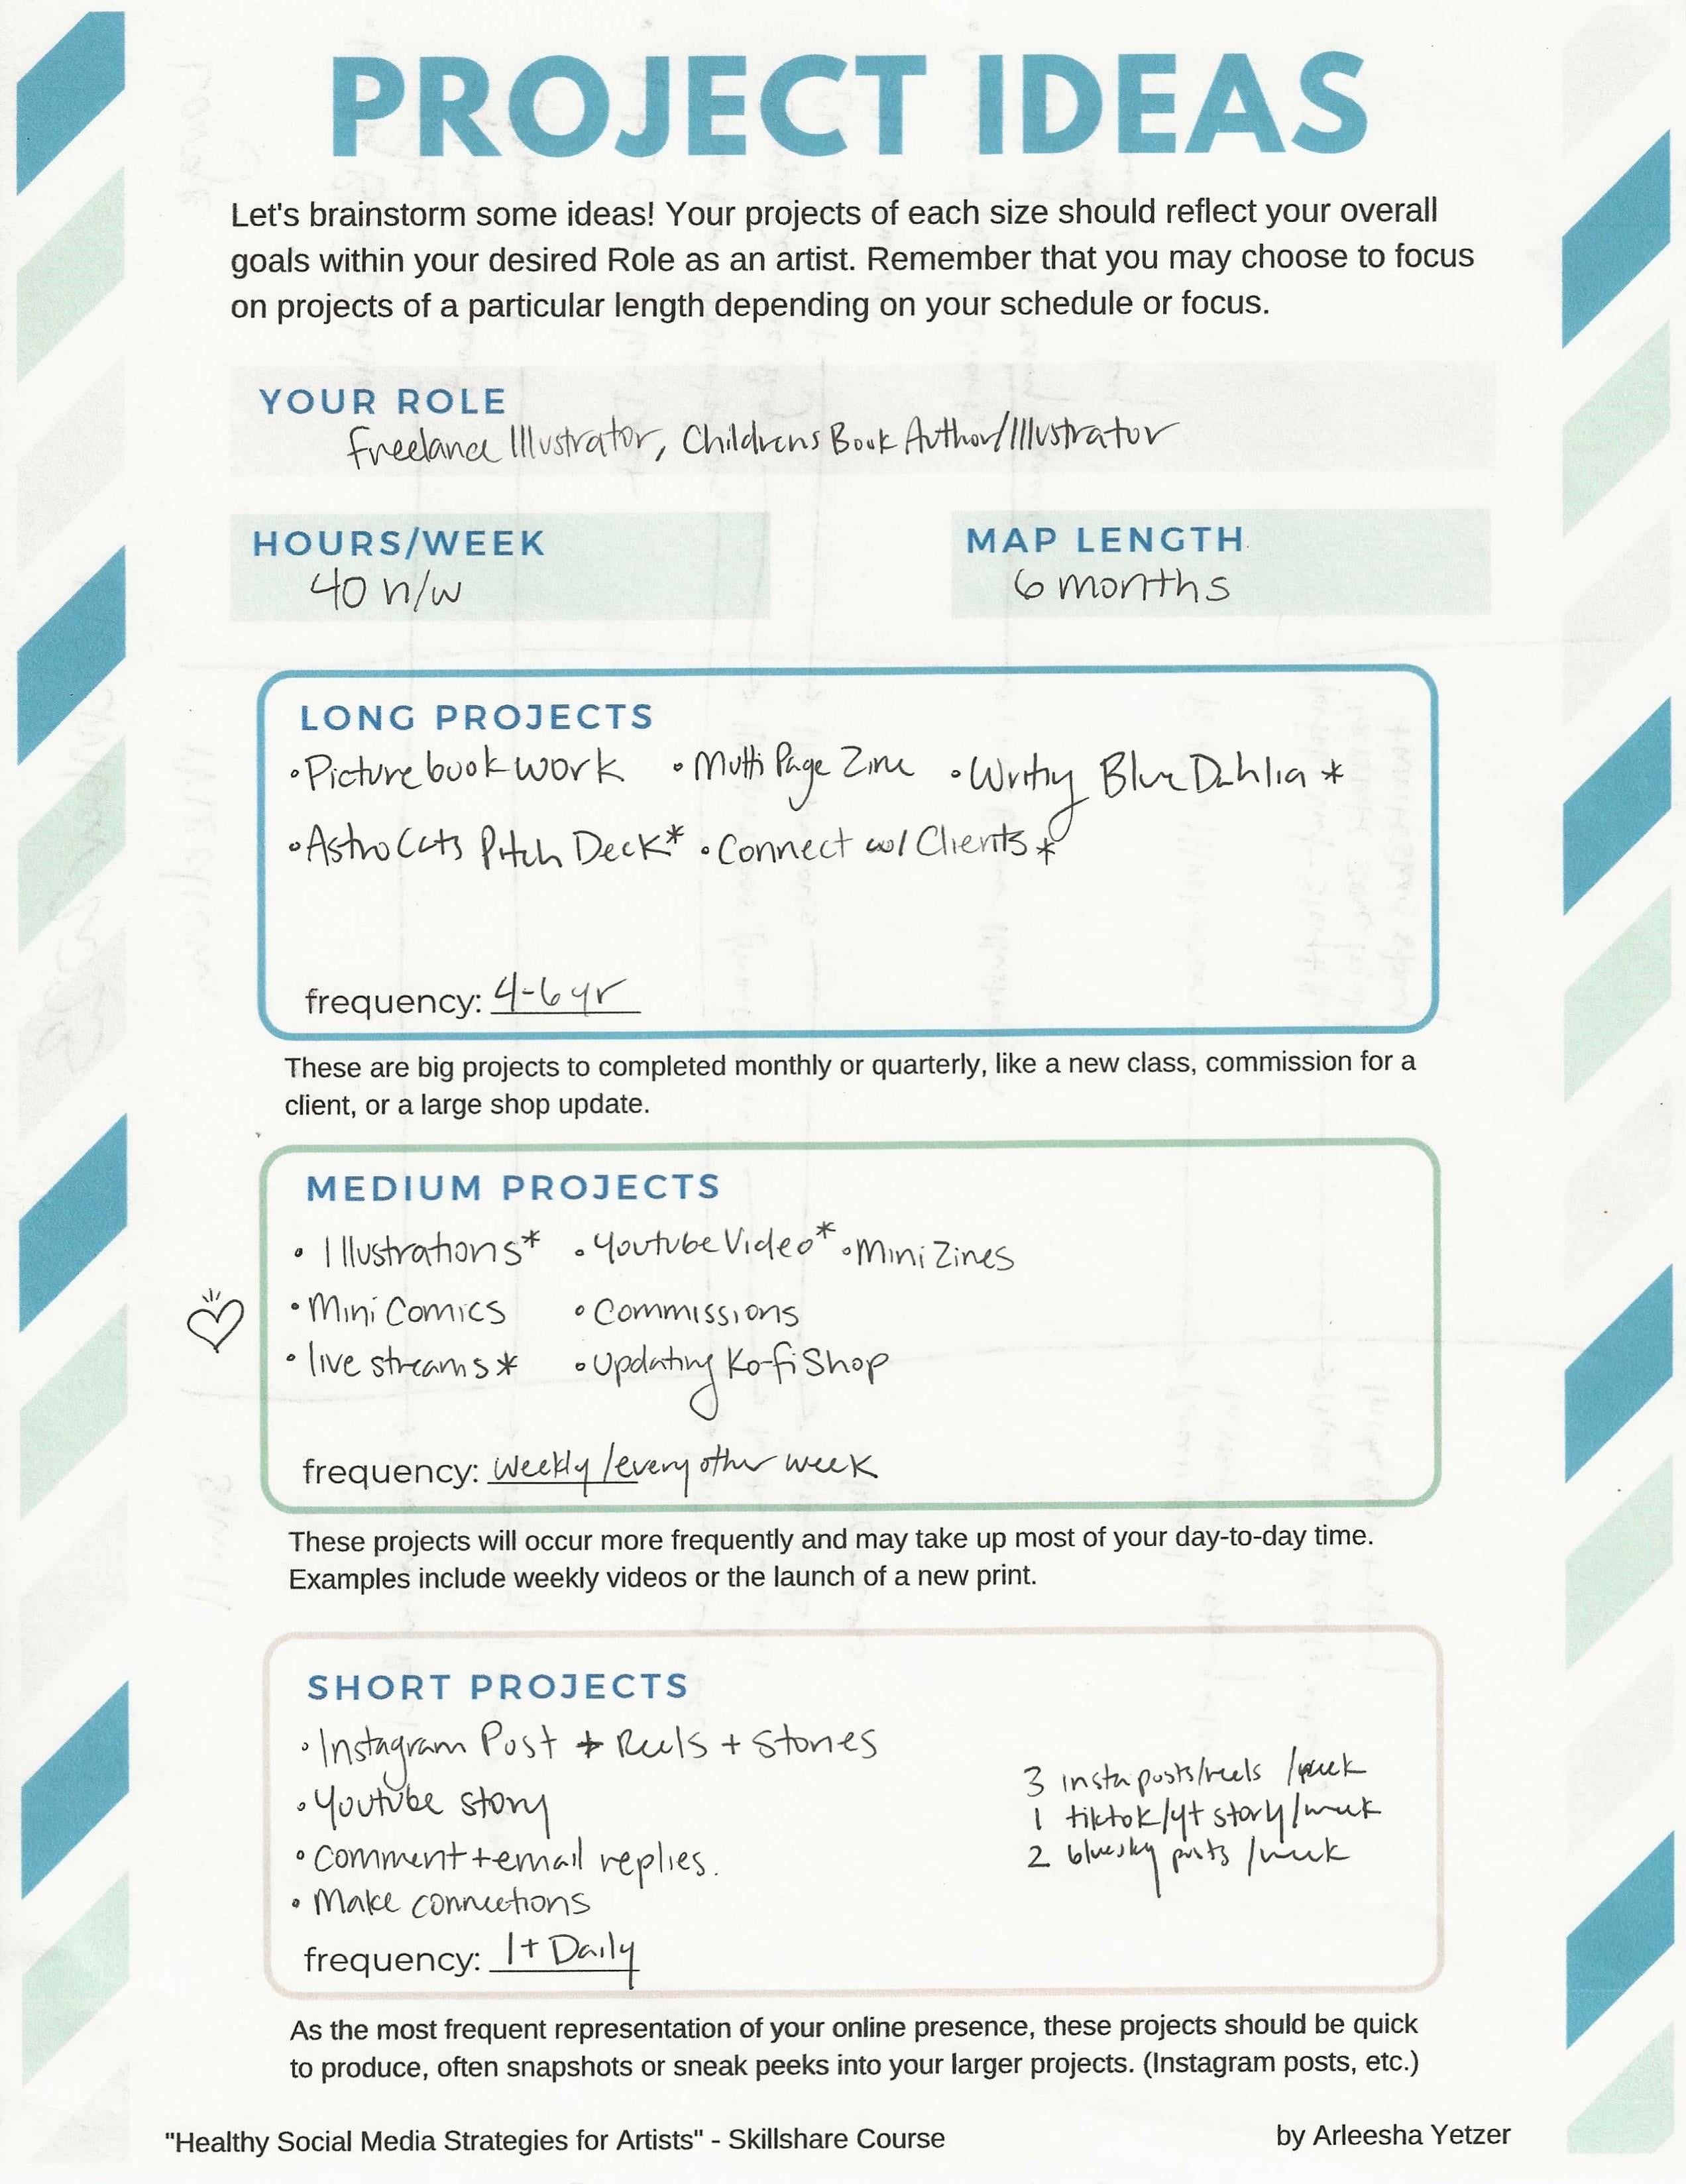 PROJECT IDEAS
Let's brainstorm some ideas! Your projects of each size should reflect your overall
goals within your desired Role as an artist. Remember that you may choose to focus
on projects of a particular length depending on your schedule or focus.
YOUR ROLE
Freelance Illustrator, Childrens Book Author/Illustrator
HOURS/WEEK
40 h/w
MAP LENGTH
6 months
LONG PROJECTS
• Picture book work • Multi Page Zine • Writing Blue Dahlia *
• Astro Cats Pitch Deck* • Connect w/ Clients *
frequency: 4-6 yr
These are big projects to completed monthly or quarterly, like a new class, commission for a
client, or a large shop update.
MEDIUM PROJECTS
• Illustrations* • Youtube Video* • Mini Zines
• Mini Comics • Commissions
• live streams * • Updating Ko-fi Shop
frequency: Weekly/every other week
These projects will occur more frequently and may take up most of your day-to-day time.
Examples include weekly videos or the launch of a new print.
SHORT PROJECTS
• Instagram Post + Reels + Stories
• Youtube story
• Comment + email replies.
• Make connections
3 insta posts/reels /week
1 tiktok/yt story/week
2 bluesky posts /week
frequency: 1+ Daily
As the most frequent representation of your online presence, these projects should be quick
to produce, often snapshots or sneak peeks into your larger projects. (Instagram posts, etc.)
"Healthy Social Media Strategies for Artists" - Skillshare Course
by Arleesha Yetzer